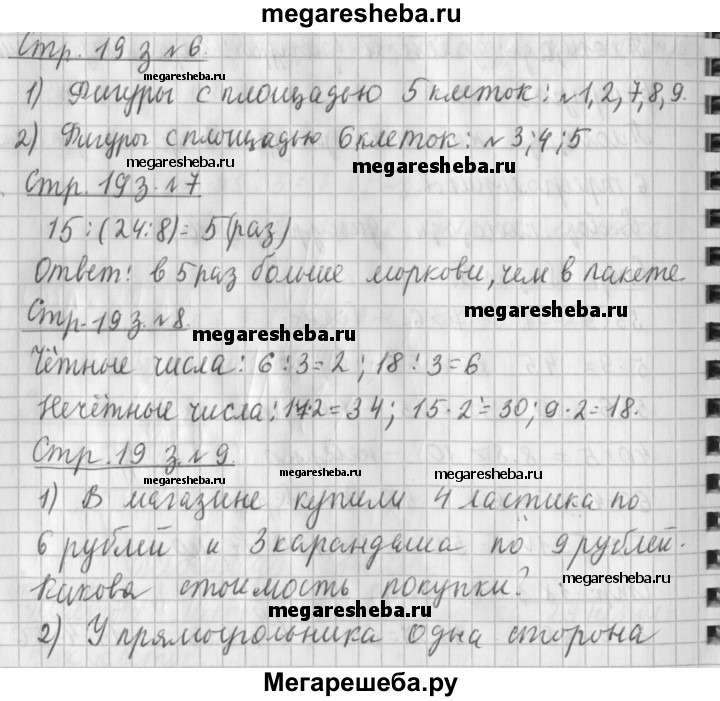 megaresheba.ru
Стр. 19 з №6.
megaresheba.ru
1) Фигуры с площадью 5 клеток: №1,2,7,8,9.
megaresheba.ru
2) Фигуры с площадью 6 клеток: №3;4;5
megaresheba.ru megaresheba.ru
Стр. 19 з. №7
15:(24:8)=5(раз)
Ответ: в 5 раз больше моркови, чем в пакете
megaresheba.ru
Стр. 19 з. №8.
megaresheba.ru
Чётные числа: 6:3=2; 18:3=6
megaresheba.ru
Нечётные числа: 17·2=34; 15·2=30; 9·2=18.
Стр. 19 з. №9.
megaresheba.ru megaresheba.ru megaresheba.ru
1) В магазине купили 4 ластика по
6 рублей и 3 карандаша по 9 рублей.
Какова стоимость покупки?
megaresheba.ru
megaresheba.ru
2) У прямоугольника одна сторона
Мегарешеба.ру